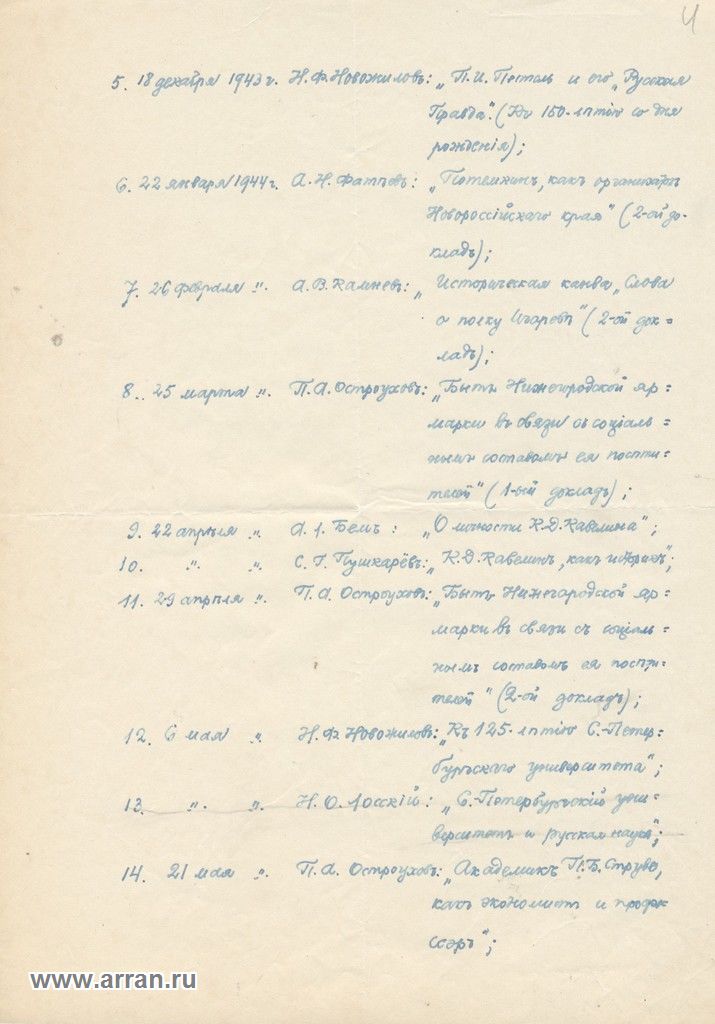 4
5. 18 декабря 1943 г. Н.Ф. Новожиловъ: „П.И. Пестель и его „Русская
Правда". (Къ 150-лѣтію со дня
рожденія);
6. 22 января 1944 г. А.Н. Фатѣевъ: „Потемкинъ, какъ организаторъ
Новороссійскаго края" (2-ой до-
кладъ);
7. 26 февраля ". А.В. : „Историческая канва „Слова
о полку Игоревѣ" (2-ой док=
ладъ);
8. 25 марта ". П.А. Остроуховъ: „Бытъ Нижегородской яр=
марки въ связи съ соціаль=
нымъ составомъ ея посѣти=
телей" (1-ый докладъ);
9. 22 апрѣля ". А.Л. Бемъ: „О личности К.Д. Кавелина";
10. ". ". С.Г. Пушкарёвъ: „К.Д. Кавелинъ, какъ историкъ";
11. 29 апрѣля ". П.А. Остроуховъ: „Бытъ Нижегородской яр=
марки въ связи съ соціаль=
нымъ составомъ ея посѣти=
телей" (2-ой докладъ);
12. 6 мая ". Н.Ф. Новожиловъ: „Къ 125-лѣтію С.-Петер=
бургскаго университета";
13. ". ". Н.О. Лосскій: „С.-Петербургскій уни=
верситетъ и русская наука";
14. 21 мая ". П.А. Остроуховъ: „Академикъ П.Б. Струве,
какъ экономистъ и профес
соръ";
www.arran.ru